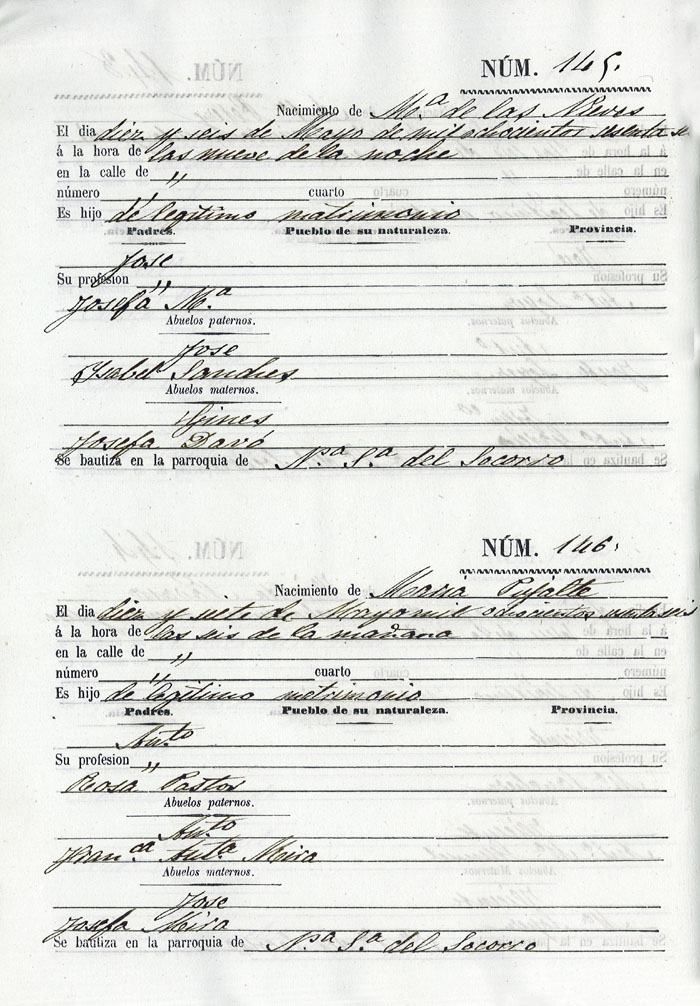 NÚM. 145.
Nacimiento de Mª de las Nieves
El dia diez y seis de Mayo de mil ochocientos sesenta se
á la hora de las nueve de la noche
en la calle de "
número " cuarto
Es hijo de legítimo matrimonio
Padres. Pueblo de su naturaleza. Provincia.
Jose
Su profesion "
Josefa Mª
Abuelos paternos.
Jose
Ysabel Sanches
Abuelos maternos.
Gines
Josefa Davó
Se bautiza en la parroquia de Nª Sª del Socorro
NÚM. 146.
Nacimiento de Maria Pujalte
El dia diez y siete de Mayo mil ochocientos sesenta seis
á la hora de las seis de la mañana
en la calle de "
número " cuarto
Es hijo de legítimo matrimonio
Padres. Pueblo de su naturaleza. Provincia.
Anto
Su profesion "
Rosa Pastor
Abuelos paternos.
Anto
Franca Anta Mira
Abuelos maternos.
Jose
Josefa Mira
Se bautiza en la parroquia de Nª Sª del Socorro